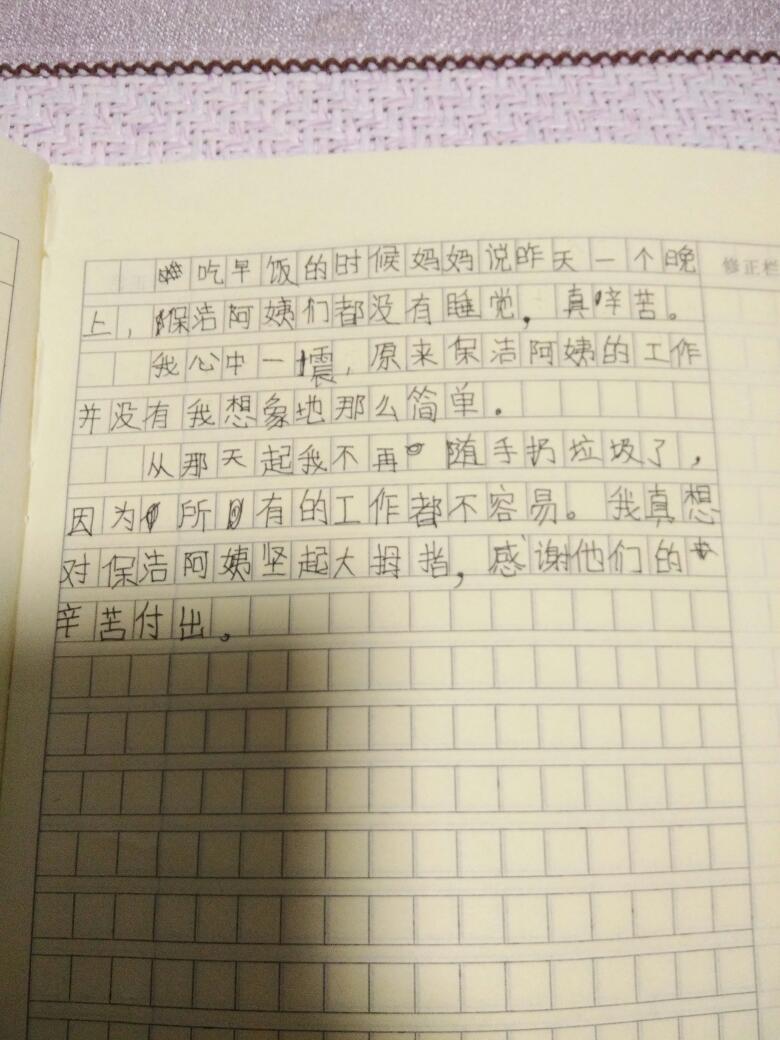 吃早饭的时候妈妈说昨天一个晚
修正栏
上，保洁阿姨们都没有睡觉，真辛苦。
我心中一震，原来保洁阿姨的工作
并没有我想象地那么简单。
从那天起我不再随手扔垃圾了，
因为所有的工作都不容易。我真想
对保洁阿姨坚起大拇指，感谢他们的
辛苦付出。